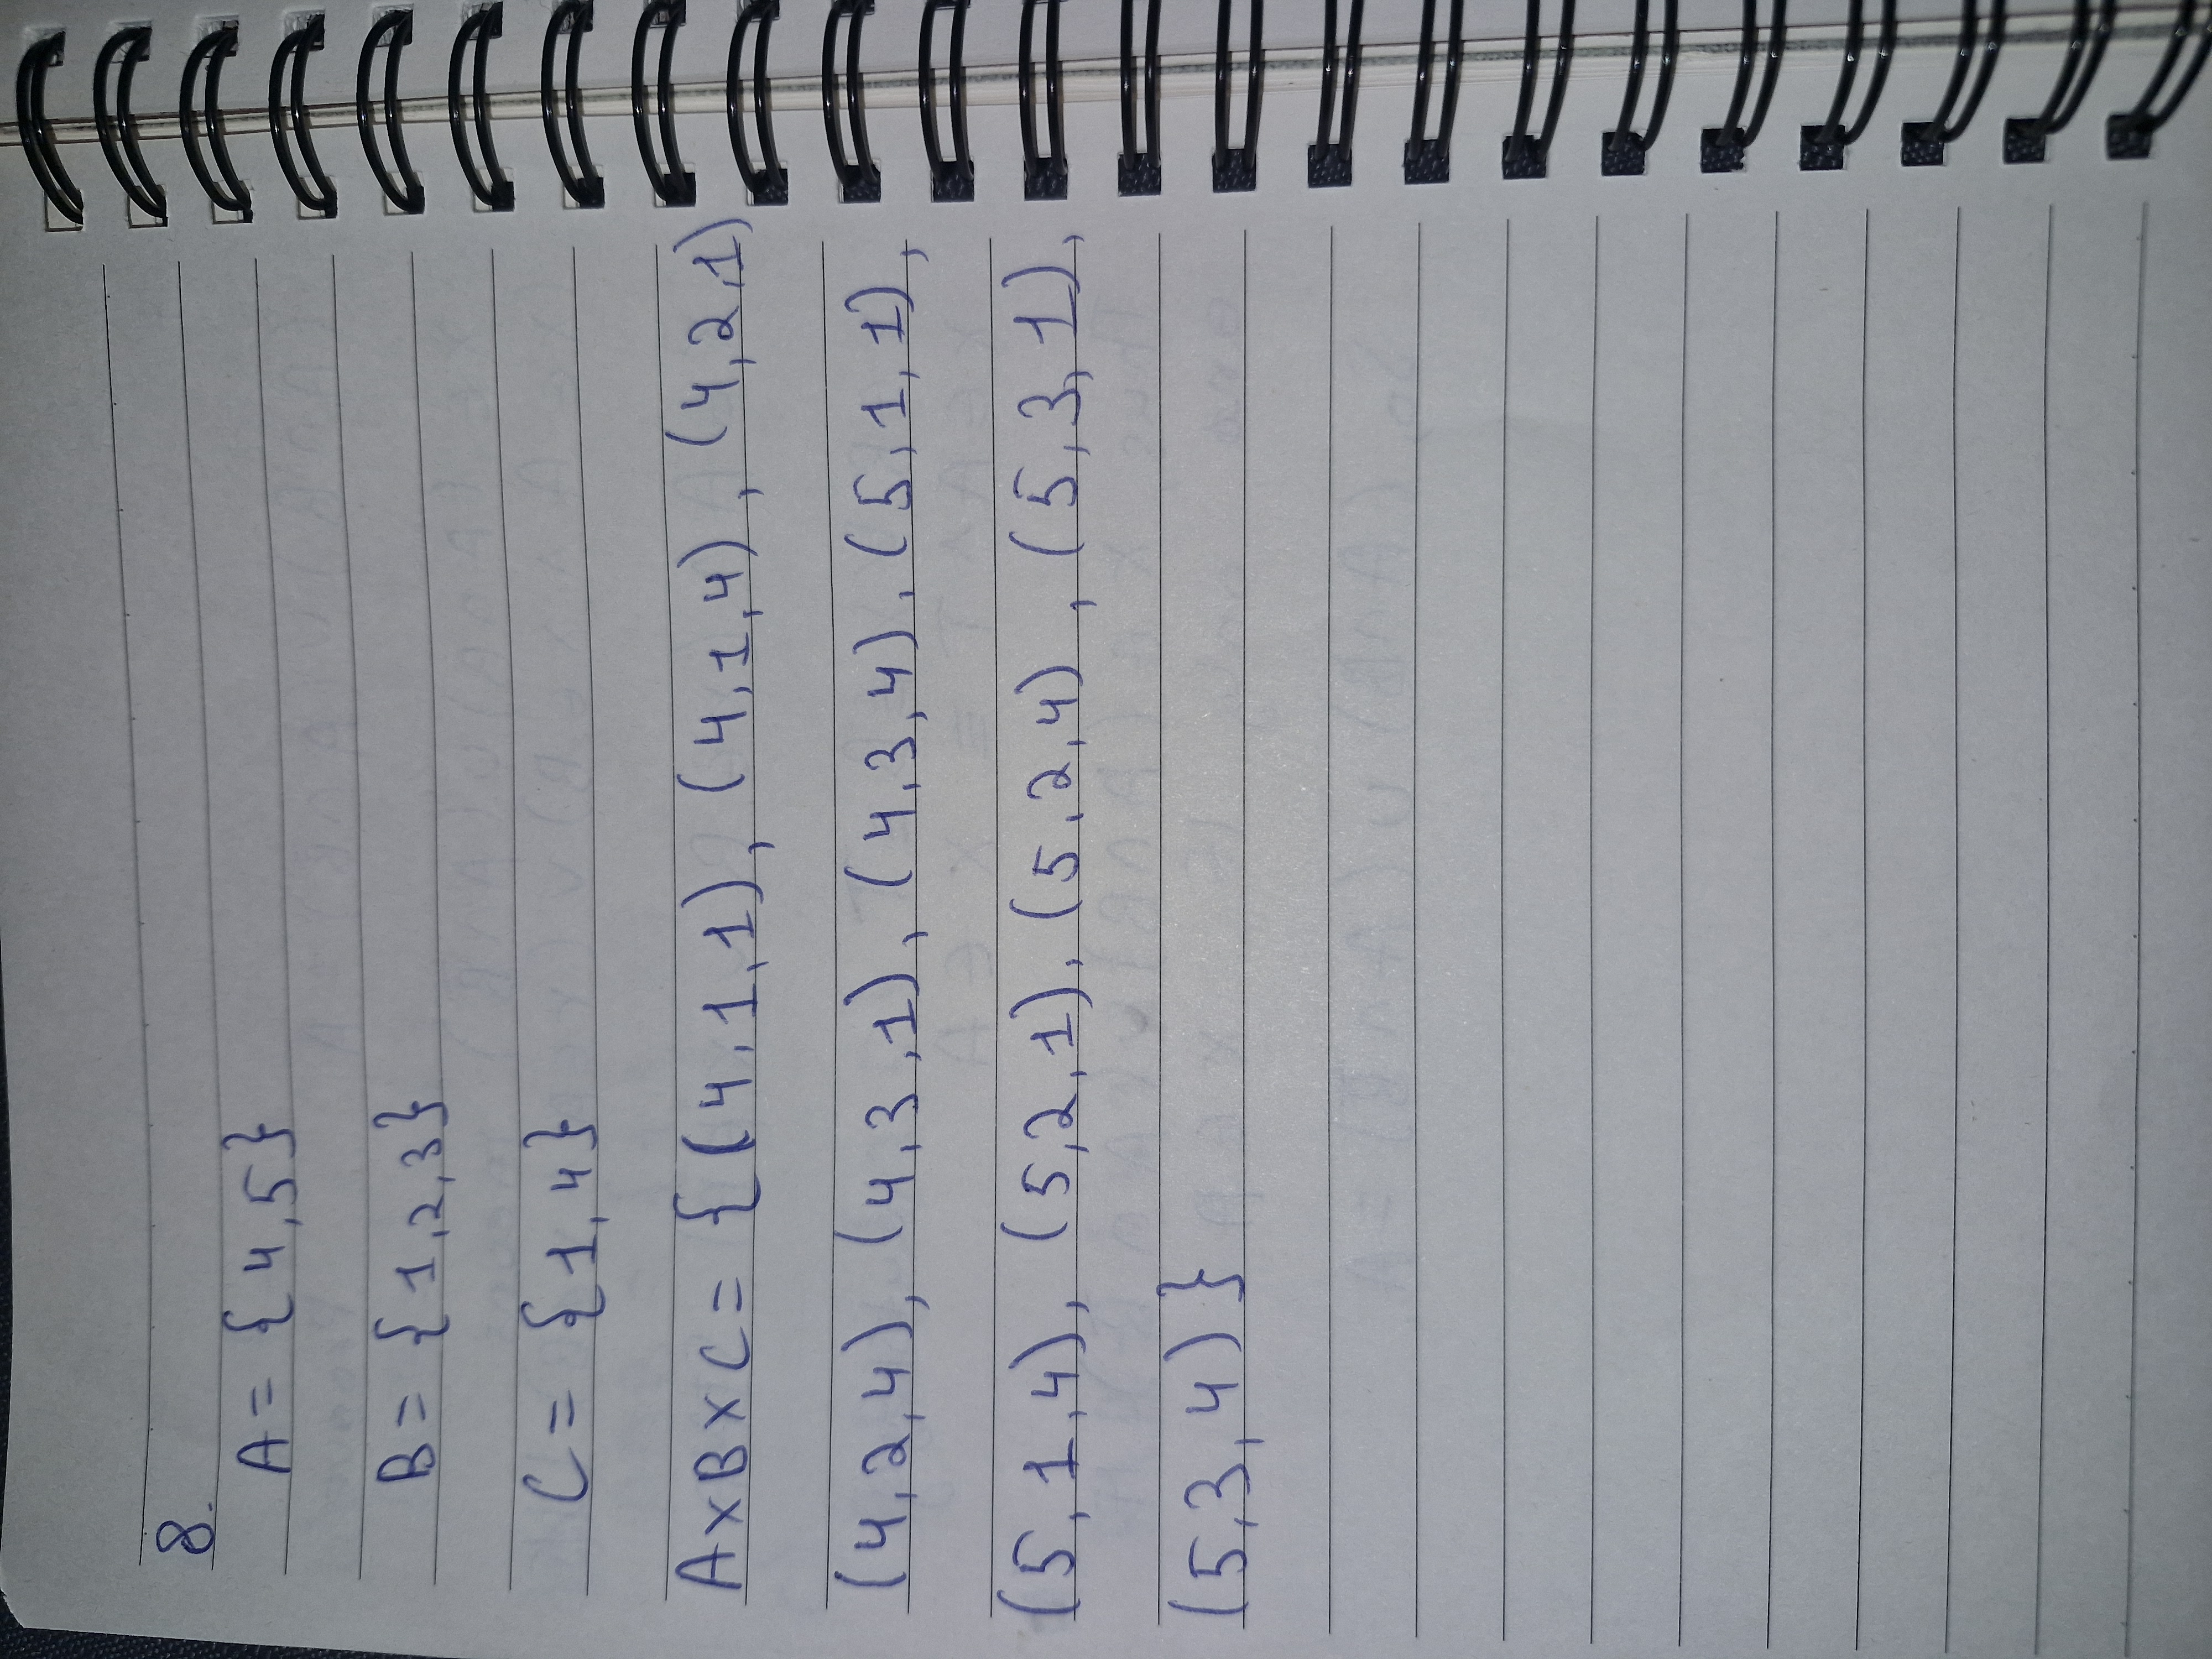 8.
A = { 4,5}
B = { 1,2,3}
C = { 1,4}
A×B×C = { (4,1,1), (4,1,4), (4,2,1)
(4,2,4), (4,3,1), (4,3,4), (5,1,1),
(5,1,4), (5,2,1), (5,2,4), (5,3,1),
(5,3,4) }